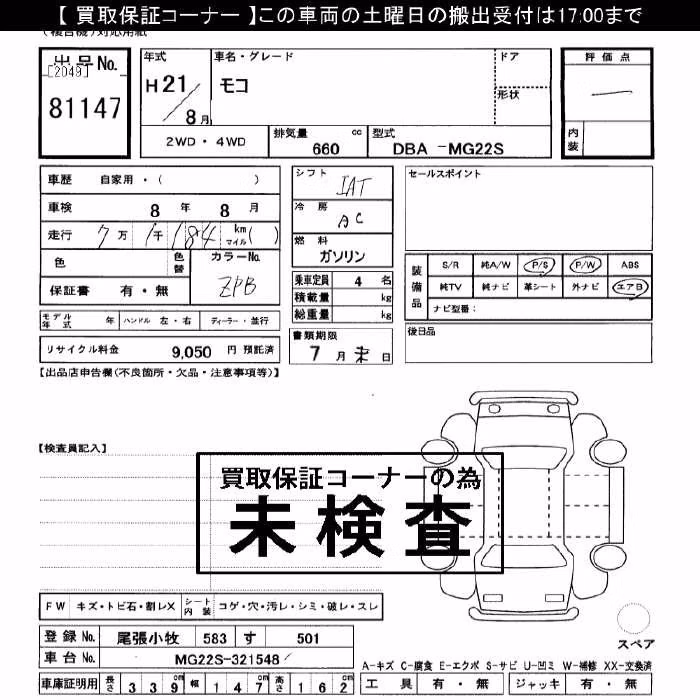 【 買取保証コーナー 】この車両の土曜日の搬出受付は17:00まで
(複合機)対応用紙
出品No.
[2049]
81147
年式
H21/8月
車名・グレード
モコ
ドア
形状
評価点
―
内装
2WD・4WD
排気量 cc
660
型式
DBA -MG22S
車歴 自家用・( )
車検 8年 8月
走行 7万1千184 km マイル( )
色
色替
カラーNo.
ZPB
保証書 有・無
シフト
IAT
冷房
AC
燃料
ガソリン
乗車定員 4 名
積載量 kg
総重量 kg
セールスポイント
装備品
S/R 純A/W P/S P/W ABS
純TV 純ナビ 革シート 外ナビ エアB
ナビ型番:
モデル年式 年 ハンドル 左・右 ディーラー・並行
リサイクル料金 9,050 円 預託済
書類期限
7月末日
後日品
【出品店申告欄(不良箇所・欠品・注意事項等)】
【検査員記入】
買取保証コーナーの為
未検査
FW キズ・トビ石・割レX シート内装 コゲ・穴・汚レ・シミ・破レ・スレ
スペア
登録No. 尾張小牧 583 す 501
車台No. MG22S-321548
A-キズ C-腐食 E-エクボ S-サビ U-凹ミ W-補修 XX-交換済
車庫証明用 長さ 339cm 幅 147cm 高さ 162cm
工具 有・無 ジャッキ 有・無